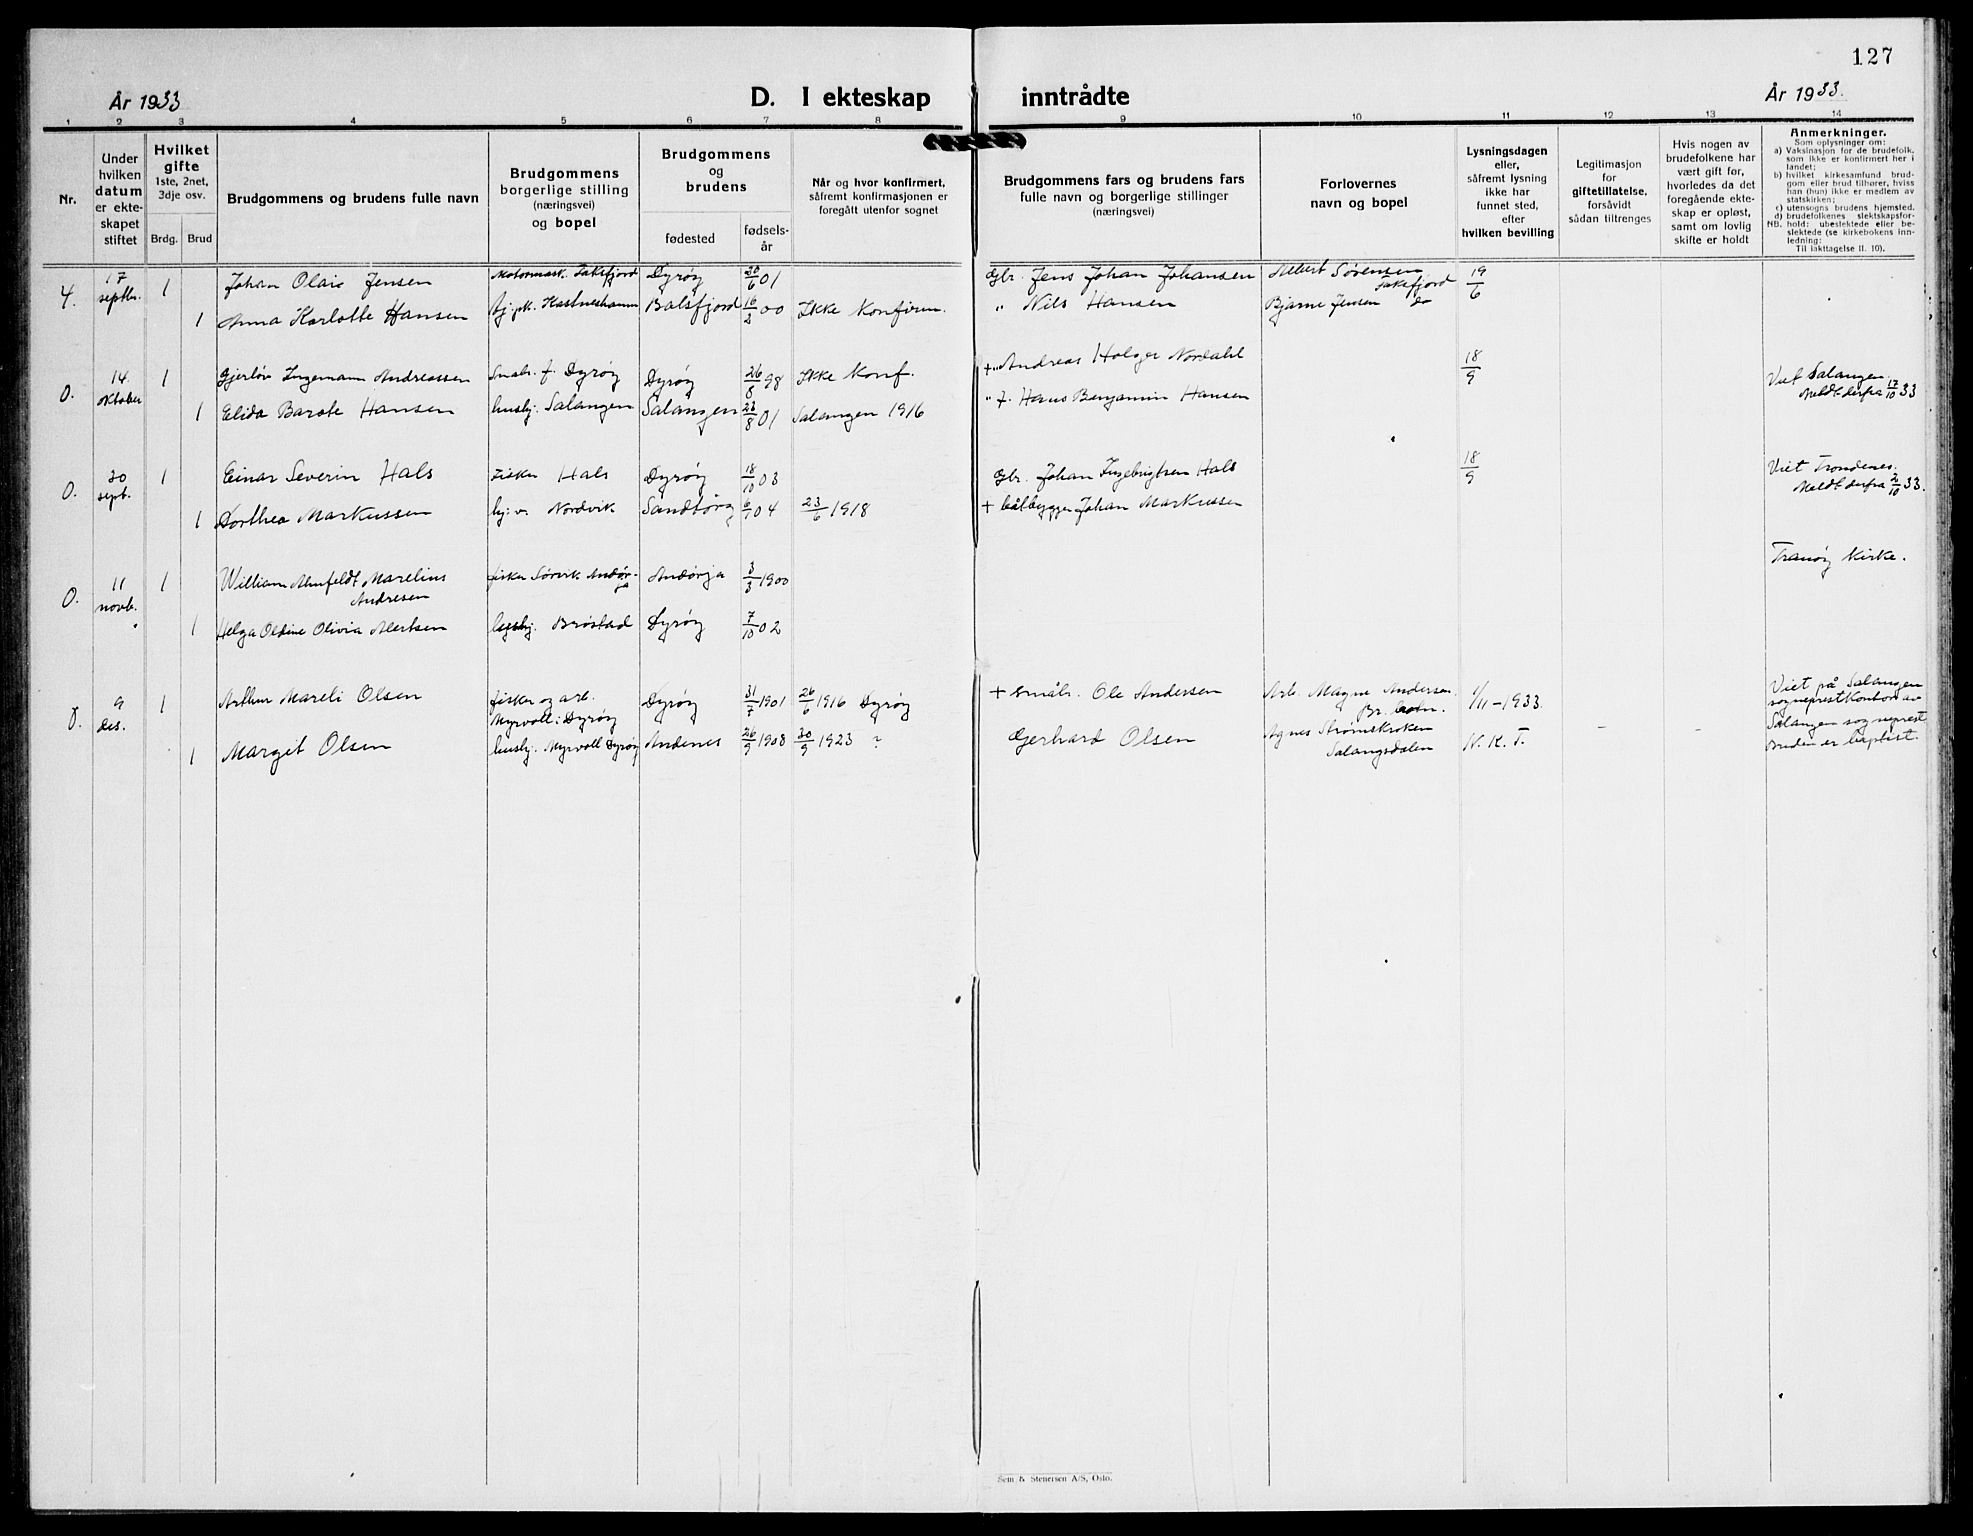 127
År 1933
D. I ekteskap inntrådte
År 1933.
1 2 3 4 5 6 7 8 9 10 11 12 13 14
Nr.
Under
hvilken
datum
er ekte-
skapet
stiftet
Hvilket
gifte
1ste, 2net,
3dje osv.
Brdg. Brud
Brudgommens og brudens fulle navn
Brudgommens
borgerlige stilling
(næringsvei)
og bopel
Brudgommens
og
brudens
fødested
fødsels-
år
Når og hvor konfirmert,
såfremt konfirmasjonen er
foregått utenfor sognet
Brudgommens fars og brudens fars
fulle navn og borgerlige stillinger
(næringsvei)
Forlovernes
navn og bopel
Lysningsdagen
eller,
såfremt lysning
ikke har
funnet sted,
efter
hvilken bevilling
Legitimasjon
for
giftetillatelse,
forsåvidt
sådan tiltrenges
Hvis nogen av
brudefolkene har
vært gift før,
hvorledes da det
foregående ekte-
skap er opløst,
samt om lovlig
skifte er holdt
Anmerkninger.
Som oplysninger om:
a) Vaksinasjon for de brudefolk,
som ikke er konfirmert her i
landet;
b) hvilket kirkesamfund brud-
gom eller brud tilhører, hviss
han (hun) ikke er medlem av
statskirken;
c) utensogns brudens hjemsted.
d) brudefolkenes slektskapsfor-
NB. hold: ubeslektede eller be-
slektede (se kirkebokens inn-
ledning:
Til iakttagelse II. 10).
4. 17 septbr. 1 Johan Olais Jensen Motormask. Dyrøy 20/6 01 Gbr. Jens Johan Johansen Albert Sørensen 19/6
1 Anna Karlotte Hansen Balsfjord 16/2 00 Ikke Konfirm. " Nils Hansen Bjarne Jensen do
0. 14. oktober 1 Gjerløv Ingemann Andreassen Småbr. f. Dyrøy Dyrøy 26/8 98 Ikke Konf. +" Andreas Holger Nordahl 18/9 Viet Salangen.
Meldt derfra 17/10 33
1 Elida Barote Hansen husbj. Salangen Salangen 23/8 01 Salangen 1916 " f. Hans Benjamin Hansen
0. 30 sept. 1 Einar Severin Hals Fisker Hals Dyrøy 18/10 03 Gbr. Johan Ingebrigtsen Hals 18/9 Viet Trondenes.
Meldt derfra 2/10 33.
1 Dorthea Markussen hj: v. Nordvik Sandtorg 6/7 04 23/6 1918 + båtbygger Johan Markussen
0. 11 novb. 1 William Arnfeldt Marelius
Andresen fisker Sørvik Andør-
ja Andørja 3/3 1900 Tranøy Kirke.
1 Helga Oldine Olivia Albertsen Brøstad Dyrøy 7/10 02
9 des. 1 Arthur Mareli Olsen fisker og arb.
Myrvoll i Dyrøy Dyrøy 31/7 1901 26/6 1916 Dyrøy + småbr. Ole Andersen Arb. Magne Andersen 1/11-1933. Viet på Salangen
sogneprestkontor av
Salangen sogneprest
Bruden er baptist.
1 Margit Olsen husbj. Myrvoll Dyrøy Andenes 26/9 1908 30/9 1923 ? Gerhard Olsen Agnes Strømskroken
Salangsdalen N. K. T. - -
Sem & Stenersen A/S, Oslo.